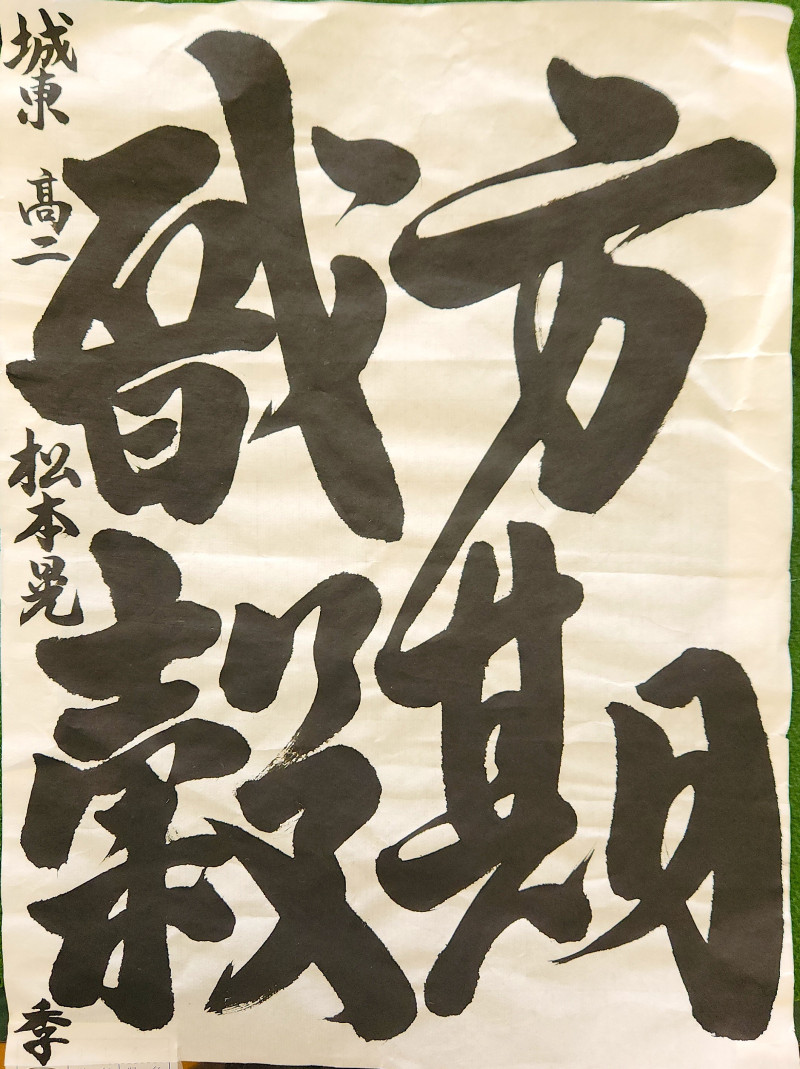 方期
戩穀
城東 高二 松本晃 季